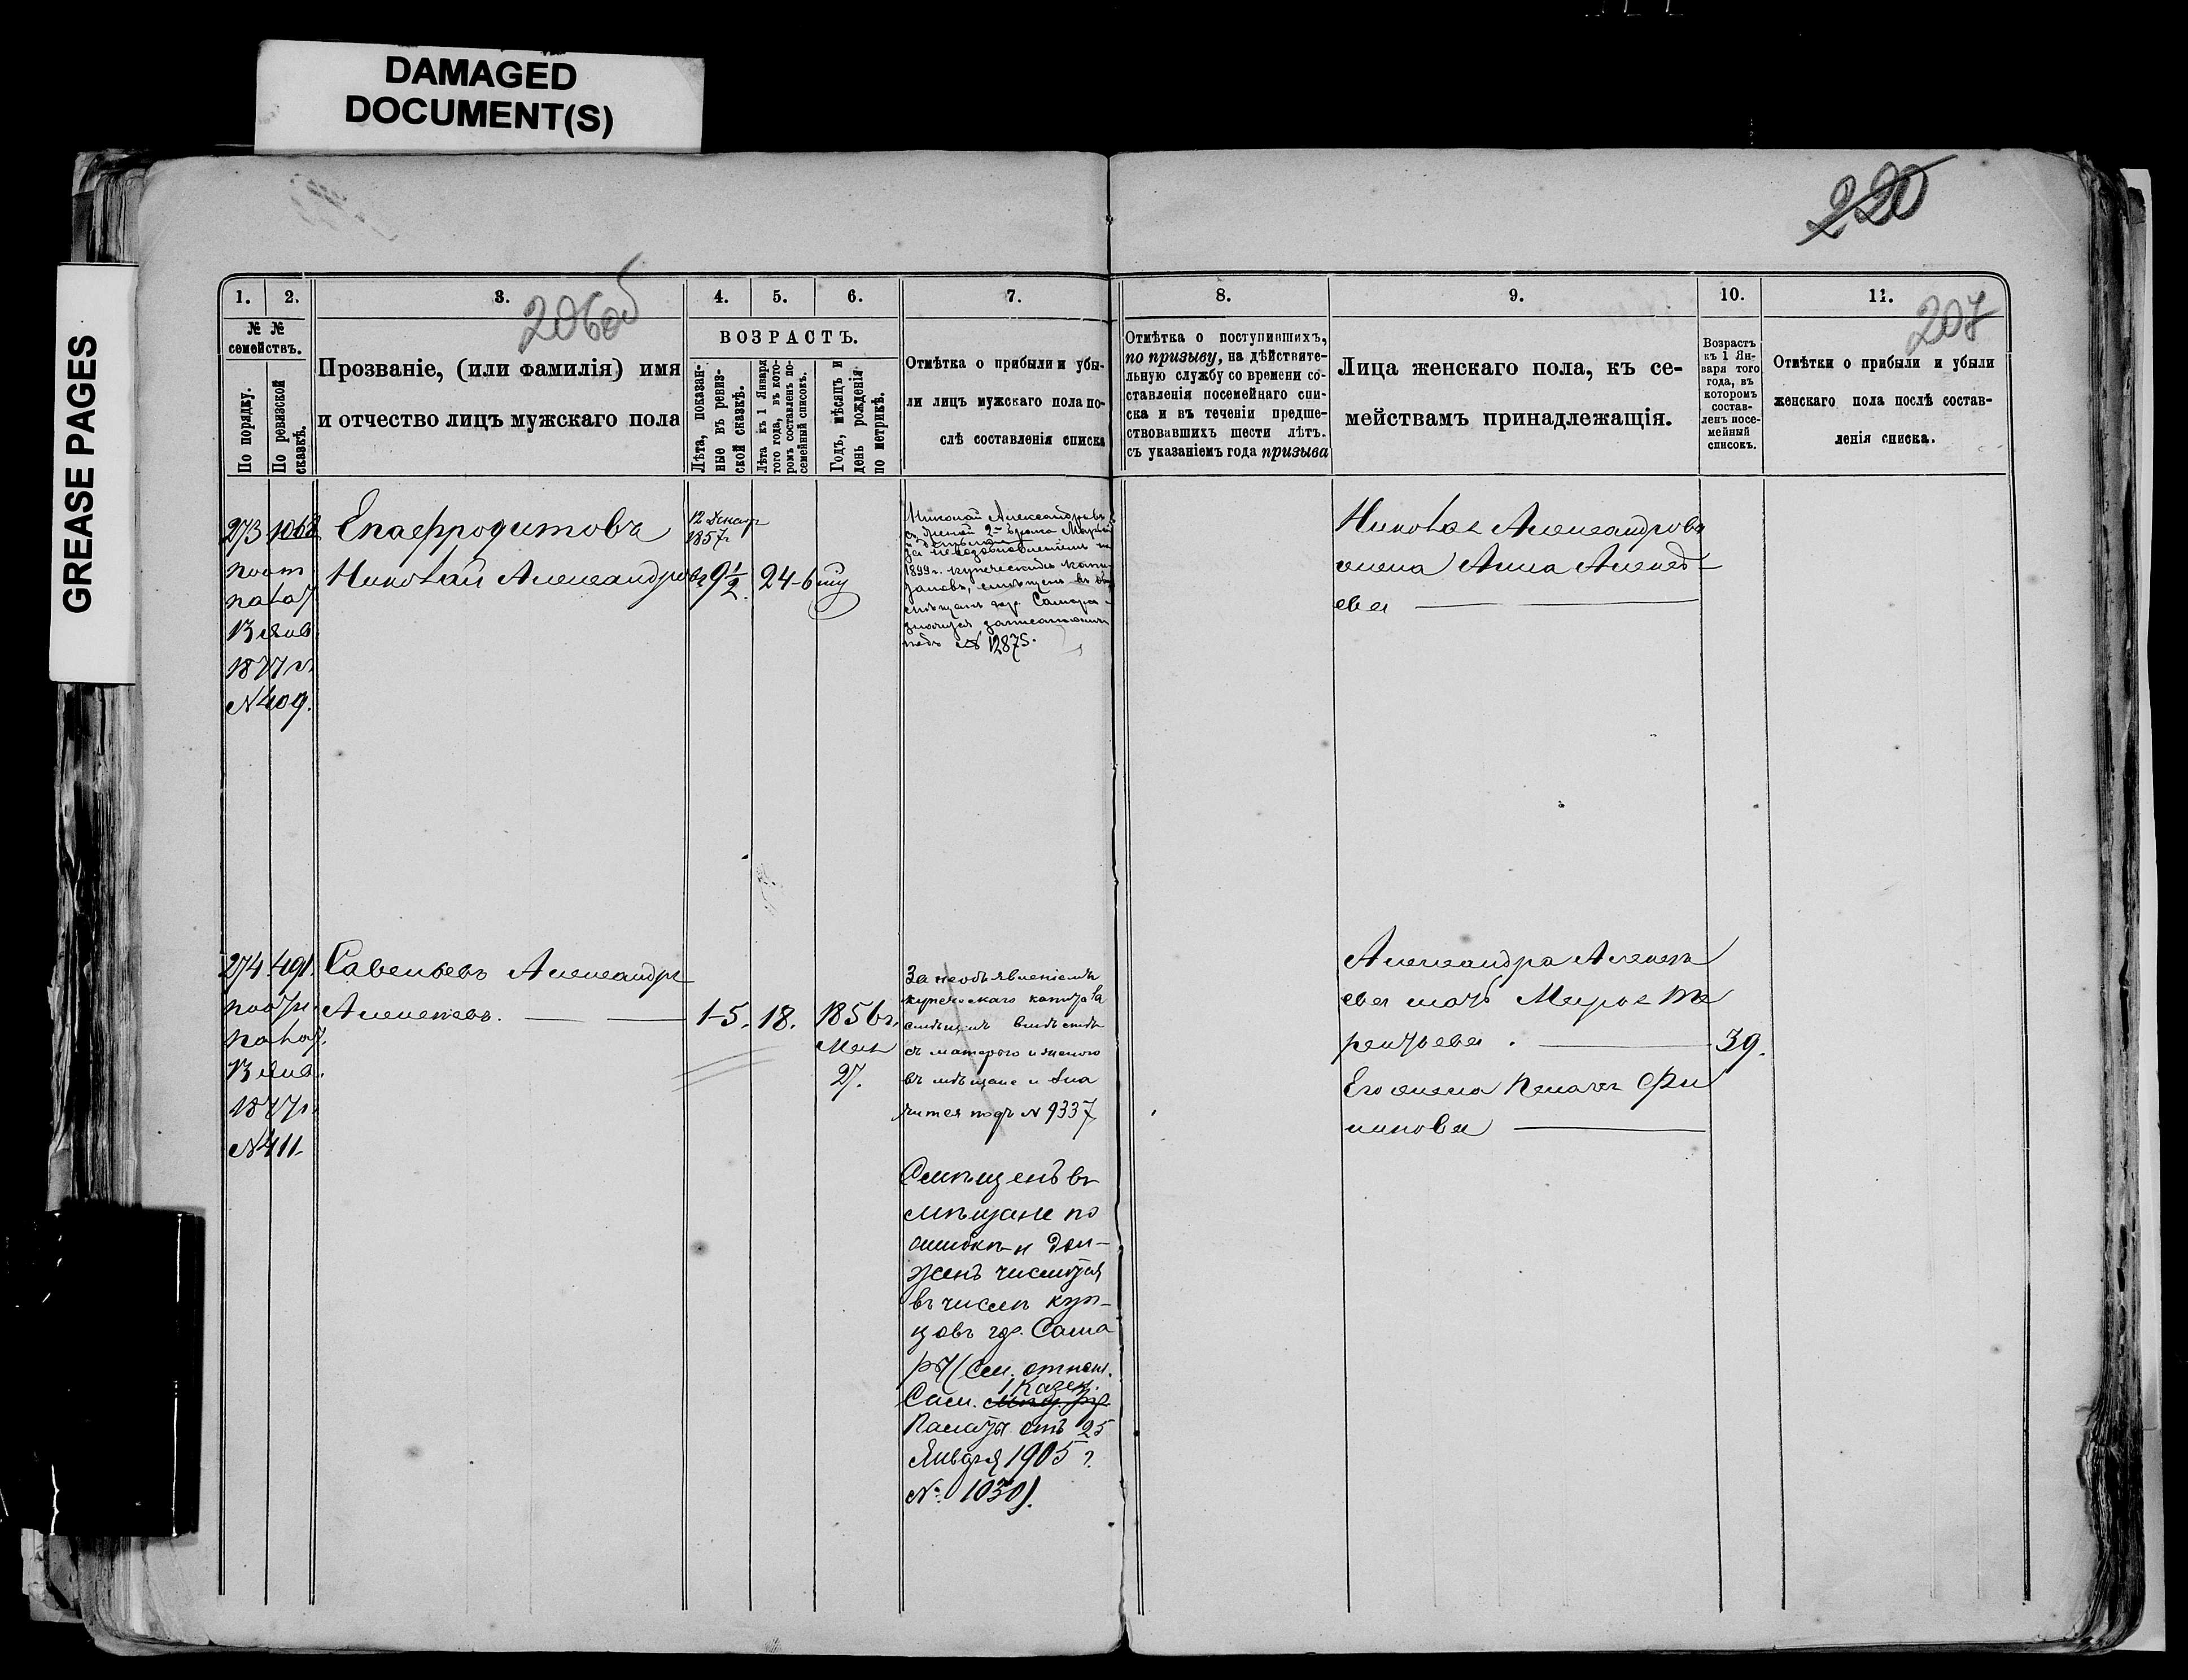 DAMAGED
DOCUMENT(S)
GREASE PAGES
220
206об
207
1.
2.
3.
4.
5.
6.
7.
8.
9.
10.
11.
№ №
семействъ.
По порядку.
По ревизской
сказкѣ.
Прозваніе, (или фамилія) имя
и отчество лицъ мужскаго пола
ВОЗРАСТЪ.
Лѣта, показан-
ные въ ревиз-
ской сказкѣ.
Лѣта къ 1 Января
того года, въ кото-
ромъ составленъ по-
семейный списокъ.
Годъ, мѣсяцъ и
день рожденія
по метрикѣ.
Отмѣтка о прибыли и убы-
ли лицъ мужскаго пола по-
слѣ составленія списка
Отмѣтка о поступившихъ,
по призыву, на дѣйствите-
льную службу со времени со-
ставленія посемейнаго спи-
ска и въ теченіи предше-
ствовавшихъ шести лѣтъ.
съ указаніемъ года призыва
Лица женскаго пола, къ се-
мействамъ принадлежащія.
Возрастъ
къ 1 Ян-
варя того
года, въ
которомъ
состав-
ленъ посе-
мейный
списокъ.
Отмѣтки о прибыли и убыли
женскаго пола послѣ состав-
ленія списка.
273 1068
пост
палат
13 Янв.
1877 г.
№ 409.
Епафродитовъ
Николай Александровъ
12 Декаб
1857 г
9½
24-6
Николай Александровъ
съ женой 2го брака Марьей
за невозобновленіемъ на
1899 г. купеческихъ капи-
таловъ,
гор. Самара
записанными
подъ № 12875.
Николая Александрова
жена Анна Алексѣ-
ева
274 491.
пост.
палат.
13 Янв.
1877 г.
№ 411.
Савельевъ Александръ
Алексѣевъ.
1-5.
18.
1856 г.
Мая
27.
За необъявленіемъ
купеческаго капитала
смѣщенъ вмѣстѣ
съ матерью и женою
въ мѣщане и зна
чится подъ № 9337
Смѣщенъ въ
мѣщане по
ошибкѣ и дол-
женъ числится
въ числѣ куп-
цовъ гор. Сама
ры (см. отнош.
Казен.
Сам.
Палаты отъ 25
Января 1905 г.
№ 1030).
Александра Алексѣ
ева мать Марья Те
рентьева.
39.
Его жена Пелагея Фи
липова